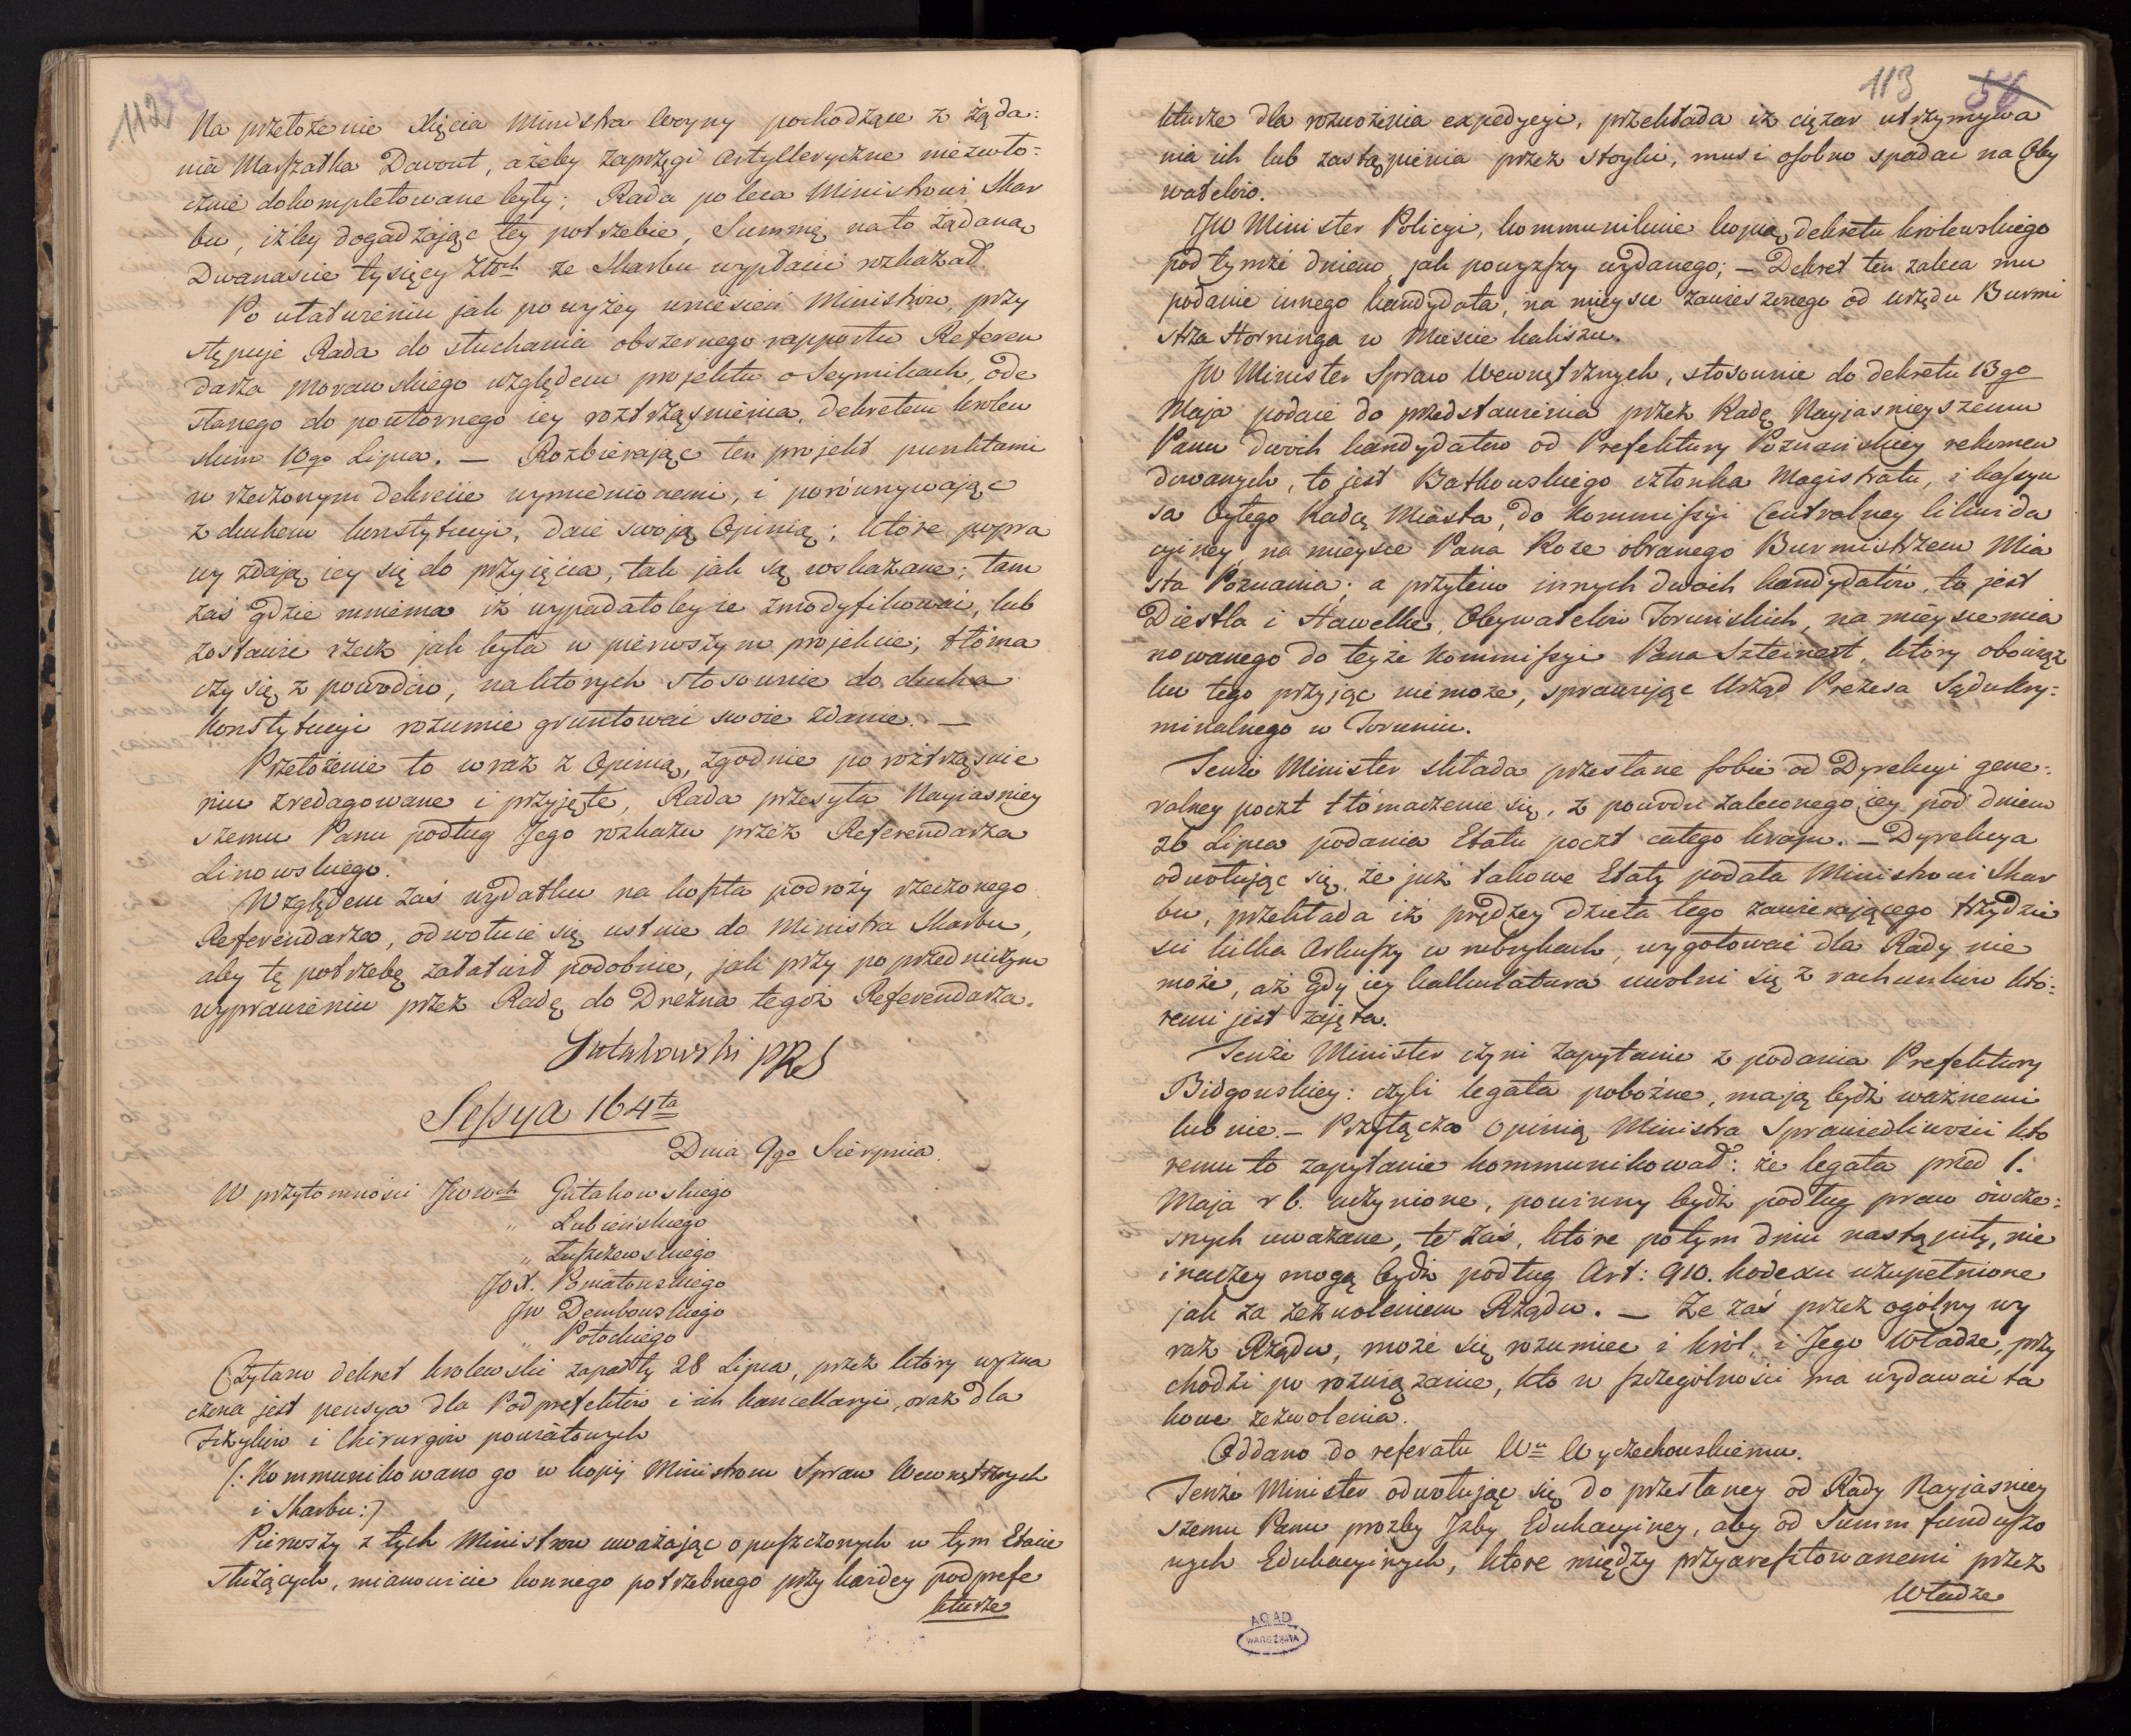 112
Na przełożenie Xięcia Ministra Woyny pochodzące z żąda:
nia Marszałka Davout, ażeby zaprzęgi Artylleryczne niezwło=
cznie dokompletowane były; Rada poleca Ministrowi Skar
bu, iżby dogadzając tey potrzebie, Summę na to żądaną
Dwanaście tysięcy Złotch ze Skarbu wypłacić rozkazał.
Po ułatwieniu jak powyżey wniesień Ministrów, przy
stępuje Rada do słuchania obszernego rapportu Referen
darza Morawskiego względem projektu o Seymikach, ode
słanego do powtórnego iey roztrząśnienia, dekretem królew
skim 10go Lipca. — Rozbierając ten projekt punktami
w rzeczonym dekrecie wymienionemi, i porównywając
z duchem konstytucyi, daie swoją Opinią; które popra
wy zdają iey się do przyięcia, tak jak są wskazane; tam
zaś gdzie mniema iż wypadałoby ie zmodyfikować, lub
zostawić rzecz jak była w pierwszym projekcie; tłóma
czy się z powodów, na których stosownie do ducha
Konstytucyi rozumie gruntować swoie zdanie. —
Przełożenie to wraz z Opinią, zgodnie po roztrząśnie
niu zredagowane i przyjęte, Rada przesyła Nayiaśniey
szemu Panu podług Jego rozkazu przez Referendarza
Linowskiego.
Względem zaś wydatku na koszta podróży rzeczonego
Referendarza, odwołuie się ustnie do Ministra Skarbu,
aby tę potrzebę załatwił podobnie, jak przy poprzedniczym
wyprawieniu przez Radę do Drezna tegoż Referendarza.
Gutakowski PRS
Sessya 164ta
Dnia 9go Sierpnia.
W przytomności JWWch Gutakowskiego
" Łubieńskiego
" Łuszczewskiego
JOX. Poniatowskiego
JW Dembowskiego
" Potockiego
Czytano dekret królewski zapadły 28 Lipca, przez który wyzna
czona jest pensya dla Podprefektów i ich kancellaryi, oraz dla
Fizyków i Chirurgów powiatowych
(: Kommunikowano go w kopij Ministrom Spraw Wewnętrznych
i Skarbu:)
Pierwszy z tych Ministrów uważając opuszczonych w tym Etacie
służących, mianowicie konnego potrzebnego przy każdey podprefe
kturze
113 56
kturze dla rozwożenia expedycyi, przekłada iż ciężar utrzymywa
nia ich lub zastąpienia przez stoyki, musi osobno spadać na Oby
watelów.
JW Minister Policyi, kommunikuie kopią dekretu królewskiego
pod tymże dniem, jak powyższy wydanego; — Dekret ten zaleca mu
podanie innego kandydata, na mieysce zawieszonego od urzędu Burmi
strza Horninga w Mieście Kaliszu.
JW Minister Spraw Wewnętrznych, stosownie do dekretu 13go
Maja podaie do przedstawienia przez Radę Nayjaśnieyszemu
Panu dwóch kandydatów od Prefektury Poznańskiey rekomen
dowanych, to jest Batkowskiego członka Magistratu, i Kassyu
sa byłego Radcę Miasta, do Kommissyi Centralney likwida
cyiney na mieysce Pana Roze obranego Burmistrzem Mia
sta Poznania; a przytém innych dwóch kandydatów, to jest
Diestla i Hawelke, Obywatelów Toruńskich, na mieysce mia
nowanego do teyże Kommissyi Pana Szteinert, który obowiąz
ku tego przyjąć niemoże, sprawując Urząd Prezesa Sądu kry=
minalnego w Toruniu.
Tenże Minister składa przesłane sobie od Dyrekcyi gene:
ralney poczt tłómaczenie się, z powodu zaleconego iey pod dniem
26 Lipca podania Etatu poczt całego kraju. — Dyrekcya
odwołując się, że już takowe Etaty podała Ministrowi Skar
bu, przekłada iż prędzey dzieła tego zawierającego trzydzie
ści kilka Arkuszy w rubrykach, wygotować dla Rady nie
może, aż gdy iey kalkulatura uwolni się z rachunków któ:
remi jest zajęta.
Tenże Minister czyni zapytanie z podania Prefektury
Bidgoskiey: czyli legata pobożne, mają bydź ważnemi
lub nie. — Przyłącza Opinią Ministra Sprawiedliwości któ
remu to zapytanie kommunikował: że legata przed 1.
Maja r b. uczynione, powinny bydź podług praw ówcze:
snych uważane, te zaś, które po tym dniu nastąpiły, nie
inaczey mogą bydź podług Art: 910. kodexu uzupełnione
jak za zezwoleniem Rządu. — Że zaś przez ogólny wy
raz Rządu, może się rozumieć i król, i Jego Władze, przy
chodzi po rozwiązanie, kto w szczególności ma wydawać ta
kowe zezwolenia.
Oddano do referatu Wu Wyczechowskiemu.
Tenże Minister odwołując się do przesłaney od Rady Nayjaśniey
szemu Panu prozby Izby Edukacyiney, aby od Summ fundusz o
wych Edukacyinych, które między przyaresztowanemi przez
Władze
AGAD
WARSZAWA